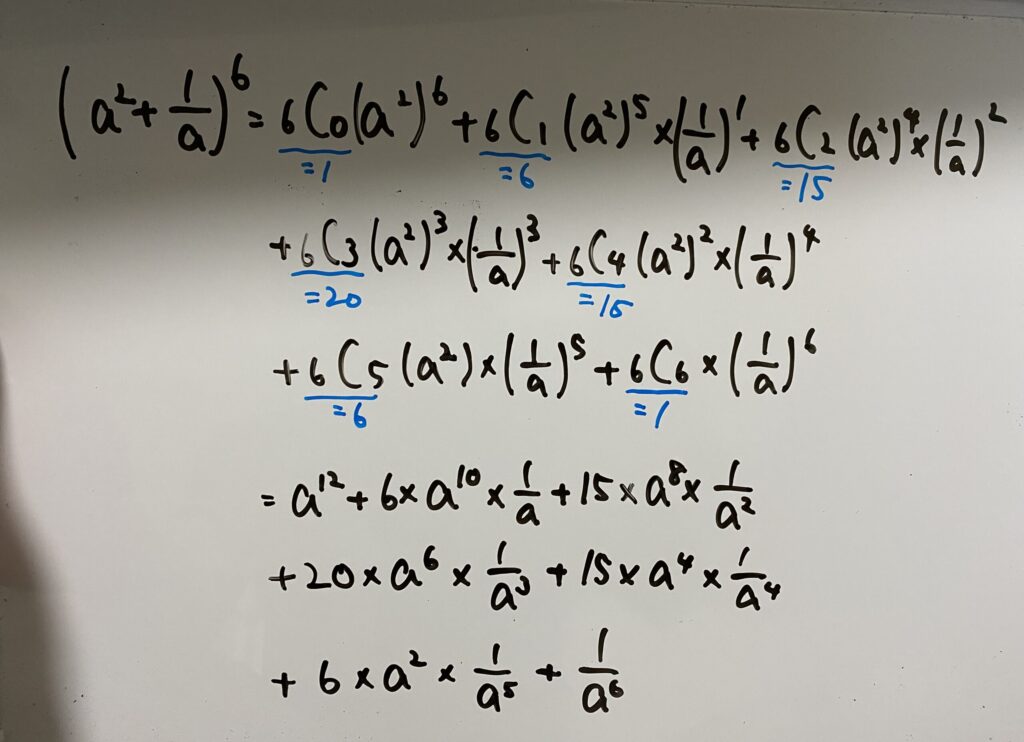 (a²+1/a)⁶=6C0(a²)⁶+6C1(a²)⁵×(1/a)¹+6C2(a²)⁴×(1/a)²
=1 =6 =15
+6C3(a²)³×(1/a)³+6C4(a²)²×(1/a)⁴
=20 =15
+6C5(a²)×(1/a)⁵+6C6×(1/a)⁶
=6 =1
=a¹²+6×a¹⁰×1/a+15×a⁸×1/a²
+20×a⁶×1/a³+15×a⁴×1/a⁴
+6×a²×1/a⁵+1/a⁶